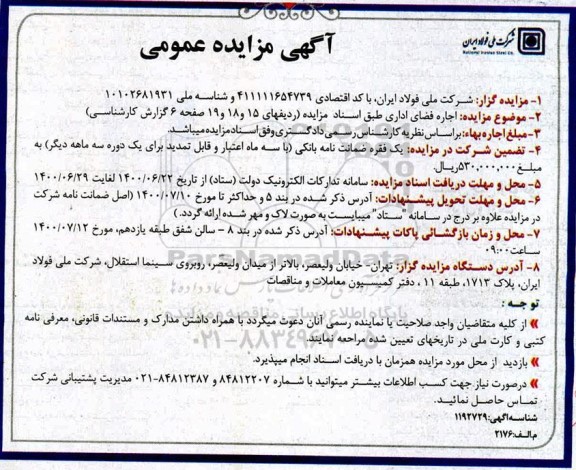 شرکت ملی فولاد ایران
National Iranian Steel Co.
آگهی مزایده عمومی
۱- مزایده گزار: شرکت ملی فولاد ایران، با کد اقتصادی ۴۱۱۱۱۱۶۵۴۷۳۹ و شناسه ملی ۱۰۱۰۲۶۸۱۹۳۱
۲- موضوع مزایده: اجاره فضای اداری طبق اسناد مزایده (ردیفهای ۱۵ و۱۸ و ۱۹ صفحه ۶ گزارش کارشناسی)
۳-مبلغ اجاره بهاء: براساس نظریه کارشناس رسمی دادگستری وفق اسناد مزایده میباشد.
۴- تضمین شرکت در مزایده: یک فقره ضمانت نامه بانکی (با سه ماه اعتبار و قابل تمدید برای یک دوره سه ماهه دیگر) به
مبلغ ۵۳۰,۰۰۰,۰۰۰ریال.
۵- محل و مهلت دریافت اسناد مزایده: سامانه تدارکات الکترونیک دولت (ستاد) از تاریخ ۱۴۰۰/۰۶/۲۲ لغایت ۱۴۰۰/۰۶/۲۹
۶- محل و مهلت تحویل پیشنهادات: آدرس ذکر شده در بند ۵ و حداکثر تا مورخ ۱۴۰۰/۰۷/۱۰ (اصل ضمانت نامه شرکت
در مزایده علاوه بر درج در سامانه "ستاد" میبایست به صورت لاک و مهر شده ارائه گردد.)
۷- محل و زمان بازگشائی پاکات پیشنهادات: آدرس ذکر شده در بند ۸ - سالن شفق طبقه یازدهم، مورخ ۱۴۰۰/۰۷/۱۲
ساعت ۰۹:۰۰
۸- آدرس دستگاه مزایده گزار: تهران- خیابان ولیعصر، بالاتر از میدان ولیعصر، روبروی سینما استقلال، شرکت ملی فولاد
ایران، پلاک ۱۷۱۳، طبقه ۱۱ ، دفتر کمیسیون معاملات و مناقصات
توجه :
از کلیه متقاضیان واجد صلاحیت یا نماینده رسمی آنان دعوت میگردد با همراه داشتن مدارک و مستندات قانونی، معرفی نامه
کتبی و کارت ملی در تاریخهای تعیین شده مراجعه نمایند.
بازدید از محل مورد مزایده همزمان با دریافت اسناد انجام میپذیرد.
درصورت نیاز جهت کسب اطلاعات بیشتر میتوانید با شماره ۸۴۸۱۲۲۰۷ و ۸۴۸۱۲۳۸۷-۰۲۱ مدیریت پشتیبانی شرکت
تماس حاصل نمائید.
شناسه آگهی: ۱۱۹۲۷۲۹
م الف: ۲۱۷۶